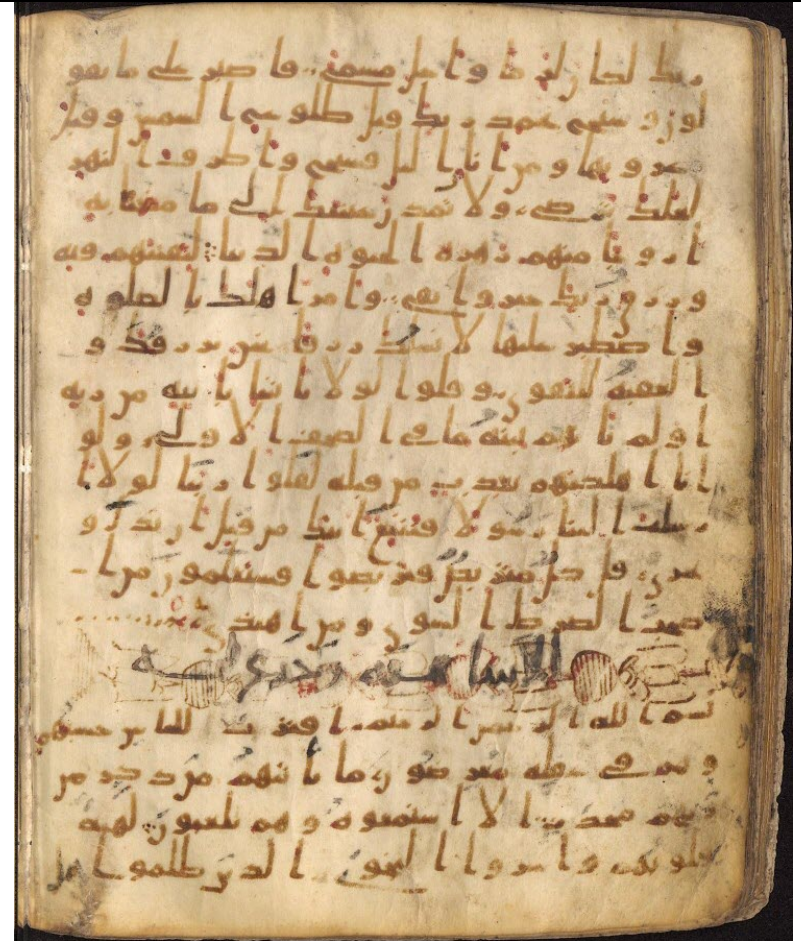 ربك لكان لزاما واجل مسمى فاصبر على ما يقو
لون وسبح بحمد ربك قبل طلوع الشمس وقبل
غروبها ومن اناى اليل فسبح واطرف النهر
لعلك ترضى ولا تمدن عينيك الى ما متعنا به
ازوجا منهم زهرة الحيوة الدنيا لنفتنهم فيه
ورزق ربك خير وابقى وامر اهلك بالصلوة
واصطبر عليها لا نسلك رزقا نحن نرزقك و
العقبة للتقوى وقلوا لولا ياتينا باية من ربه
اولم تاتهم بينة ما في الصحف الاولى ولو
انا اهلكنهم بعذب من قبله لقلوا ربنا لولا ا
رسلت الينا رسولا فنتبع ايتك من قبل ان نذل و
نخزى قل كل متربص فتربصوا فستعلمون من ا
صحب الصرط السوى ومن اهتدى
الانبيا
بسم الله الرحمن الرحيم اقترب للناس حسبهم
وهم في غفلة معرضون ما ياتيهم من ذكر من
ربهم محدث الا استمعوه وهم يلعبون لهية
قلوبهم واسروا النجوى الذين ظلموا هل